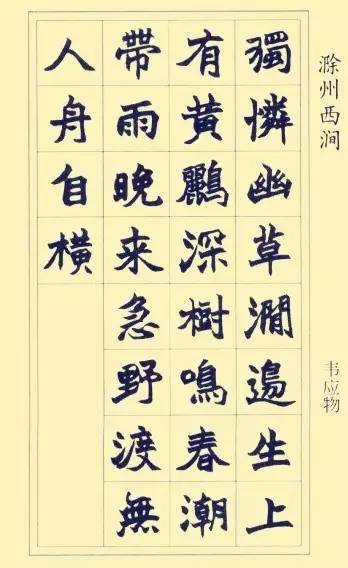 滁州西涧
韦应物
獨憐幽草澗邊生上
有黃鸝深樹鳴春潮
帶雨晚来急野渡無
人舟自橫